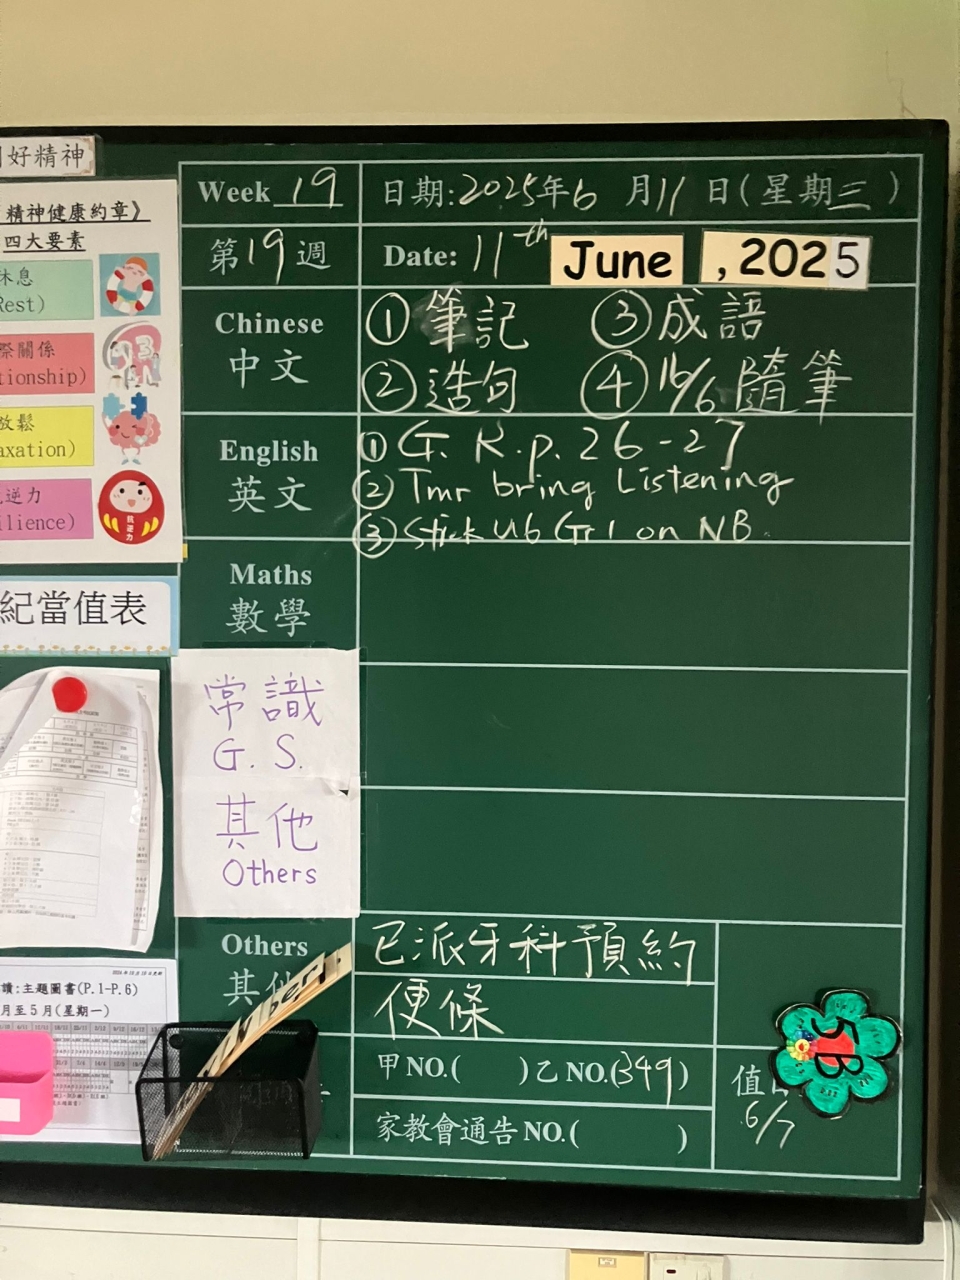 好精神
精神健康約章》
四大要素
休息
Rest)
際關係
tionship)
放鬆
axation)
逆力
ilience)
抗逆力
紀當值表
讀:主題圖書(P.1-P.6)
月至5月(星期一)
Week 19
日期:2025年6月11日(星期三)
第19週
Date: 11th June, 2025
Chinese
中文
①筆記 ③成語
②造句 ④16/6隨筆
English
英文
① G. R. p. 26-27
② Tmr bring Listening
③ Stick U6 Gr1 on NB.
Maths
數學
常識
G. S.
其他
Others
Others
其他
已派牙科預約
便條
甲NO.( ) 乙NO.(349)
家教會通告NO.( )
值
6/7
5B